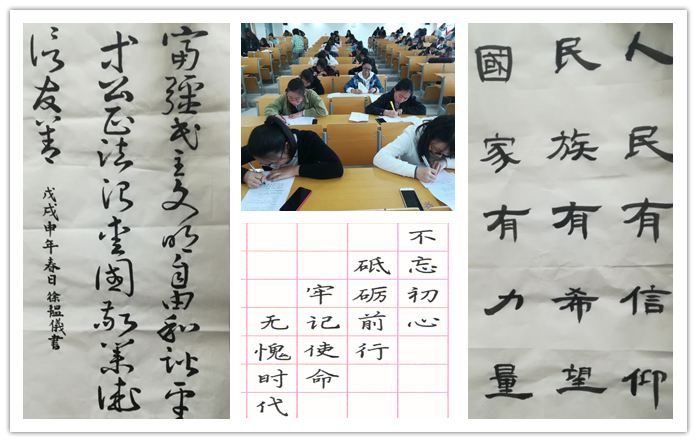 富強民主文明自由和諧平
等公正法治愛國敬業誠
信友善
戊戌申年春日徐韫儀書
不忘初心
砥砺前行
牢记使命
无愧时代
人民有信仰
民族有希望
國家有力量